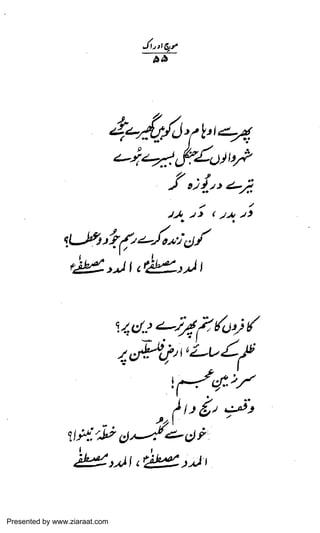 موجِ ادراک
۵۵
پھر سے اوہام دل کو ہیں گھیرے ہوئے
شہر والوں کے جنگل بسیرے ہوئے
تیرے دریوزہ گر
دَر بدر، دَر بدر
کون زندہ کرے رسمِ جُود و عطا؟
المدد مصطفےٰؐ، المدد مصطفےٰؐ
کافروں کا ستم پھر ترے دین پر؟
ظلم کے سائے، ارضِ فلسطین پر
سرزمینِ عجم!
وقفِ رنج و الم
خون سے گلبدن خطۂ نینوا؟
المدد مصطفےٰؐ، المدد مصطفےٰ
Presented by www.ziaraat.com